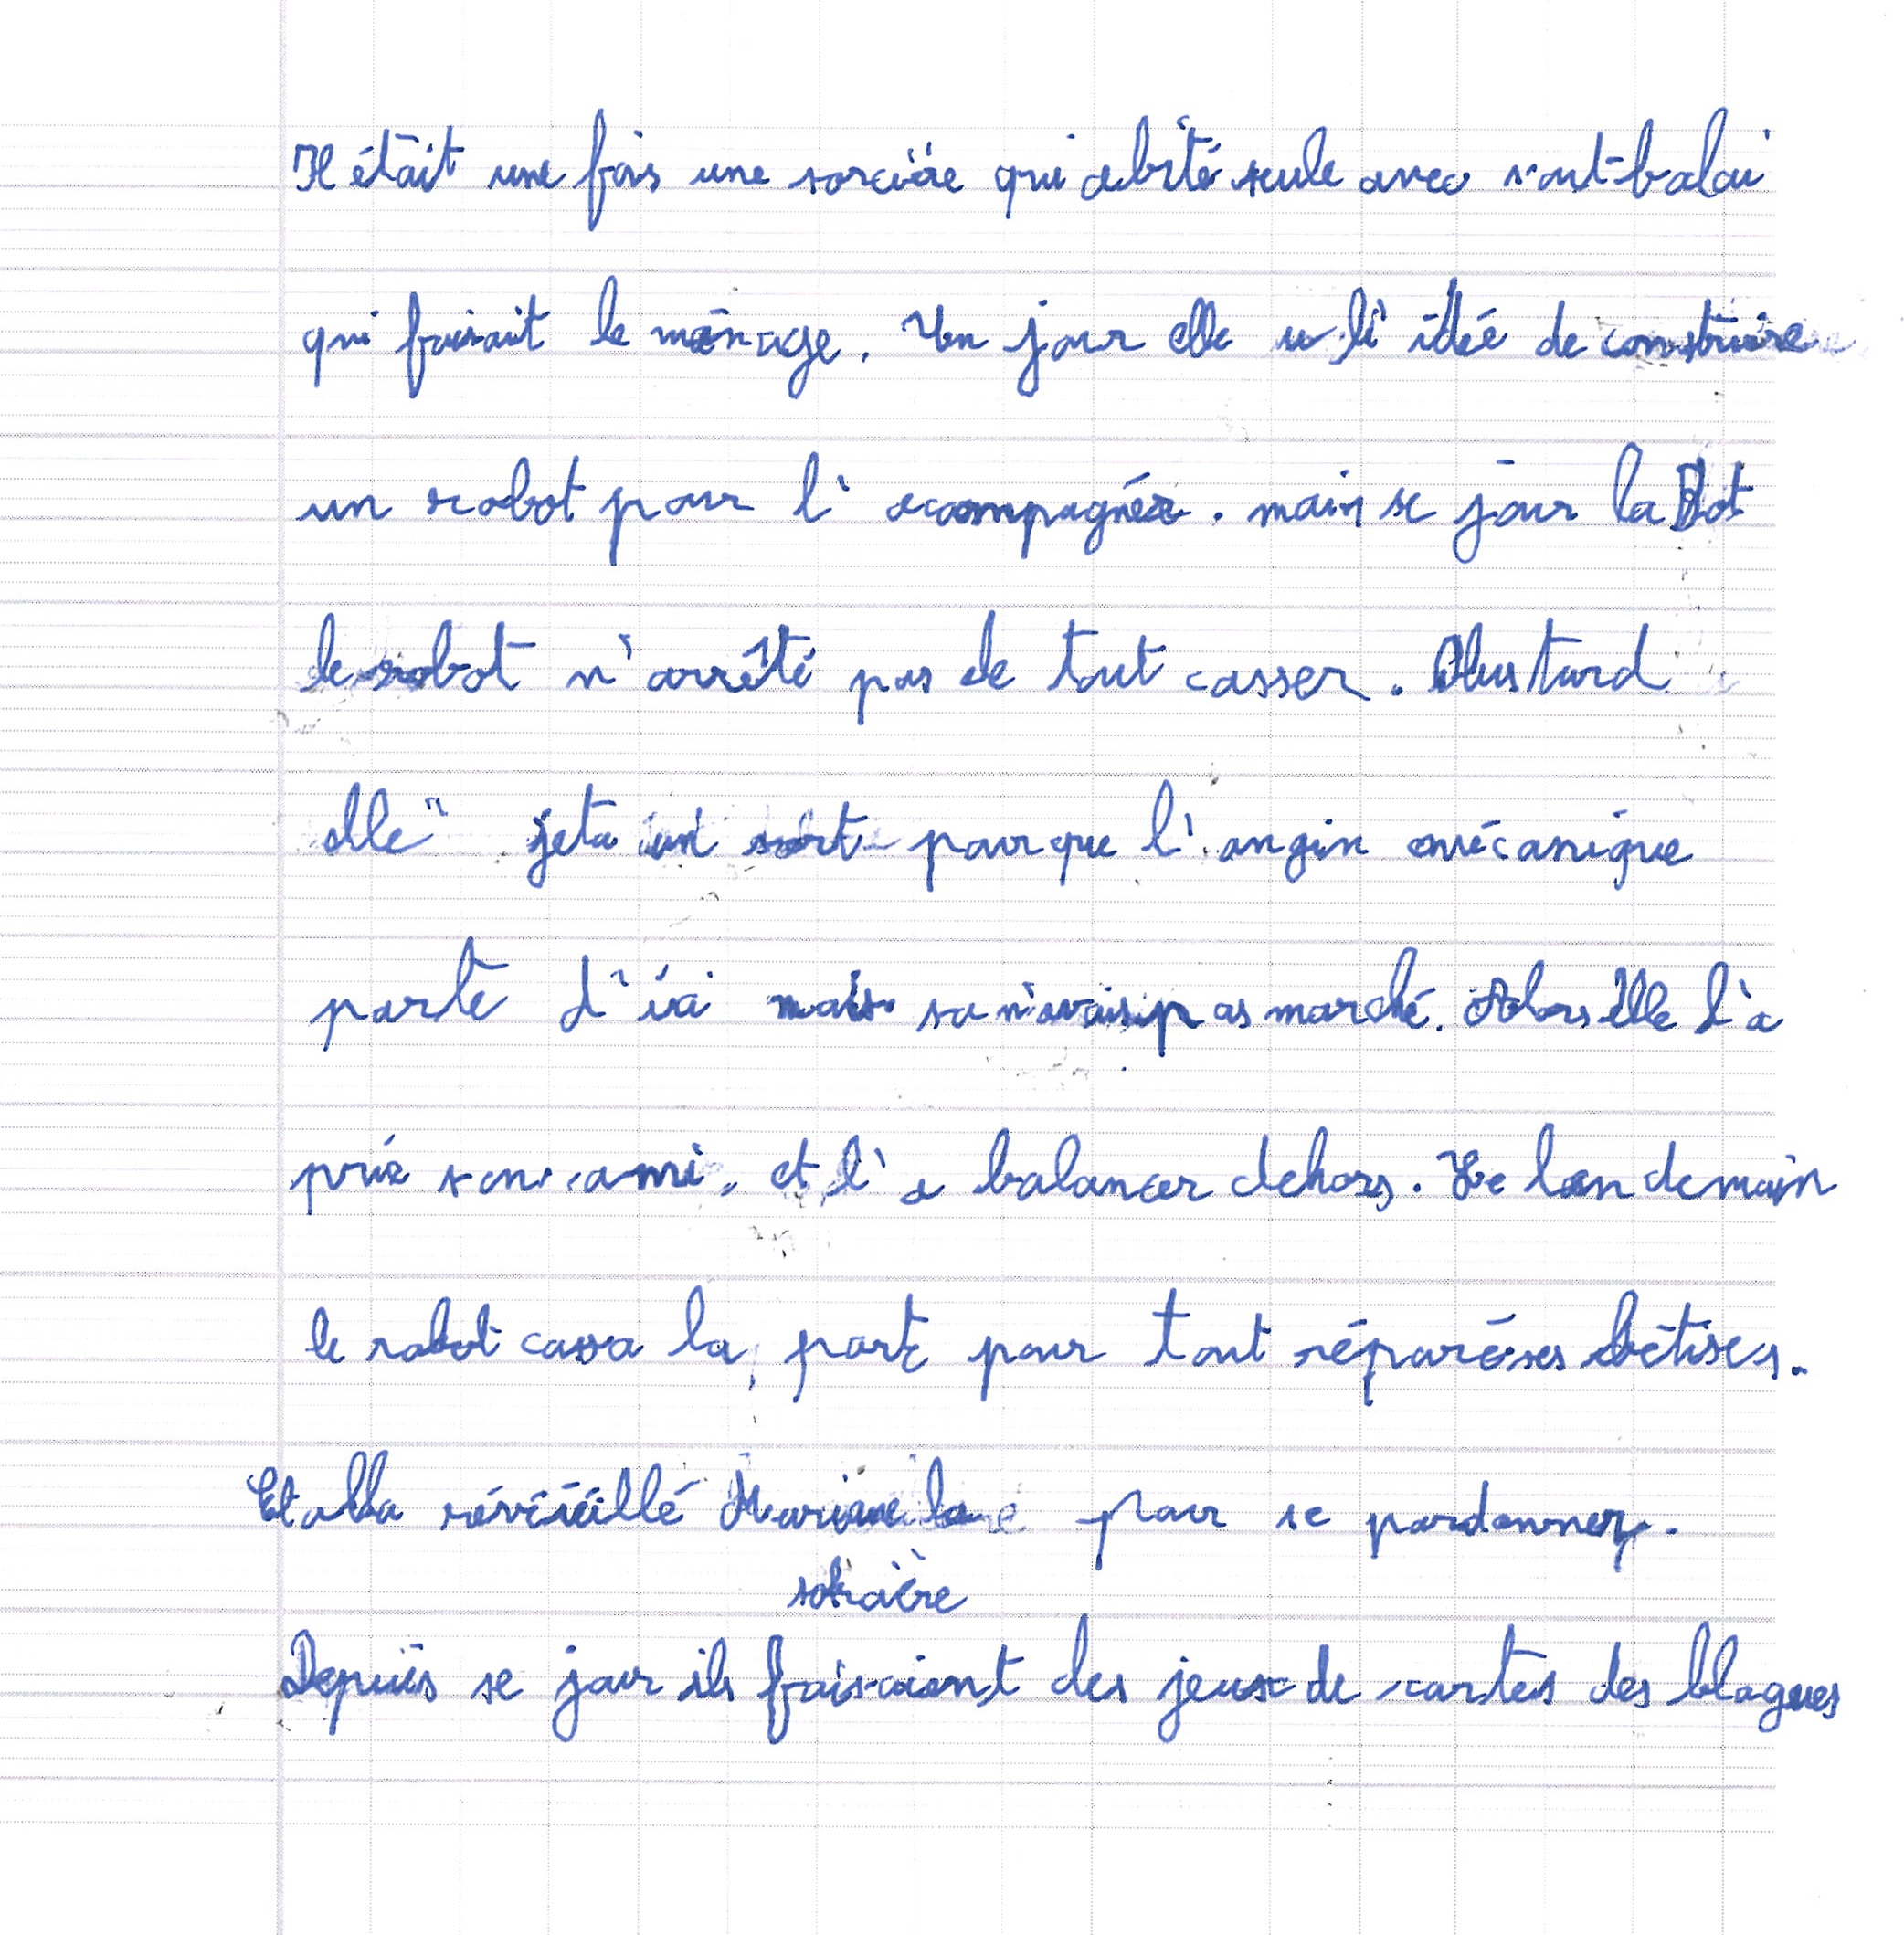 Il était une fois une sorcière qui abité seule avec sont balai
qui faisait le ménage. Un jour elle u l'idée de construire
un robot pour l'acompagnér. mais se jour la
le robot n'arrêté pas de tout casser. Plus tard
elle jeta un sort pour que l'angin mécanique
parte d'ici mais sa n'avais pas marché. Alors elle l'a
prie son ami, et l'a balancer dehors. Le lendemain
le robot cassa la porte pour tout réparé ses bêtises.
Et alla réveillé la pour se pardonner.
sorcière
Depuis se jour ils faisaient des jeux de cartes des blagues